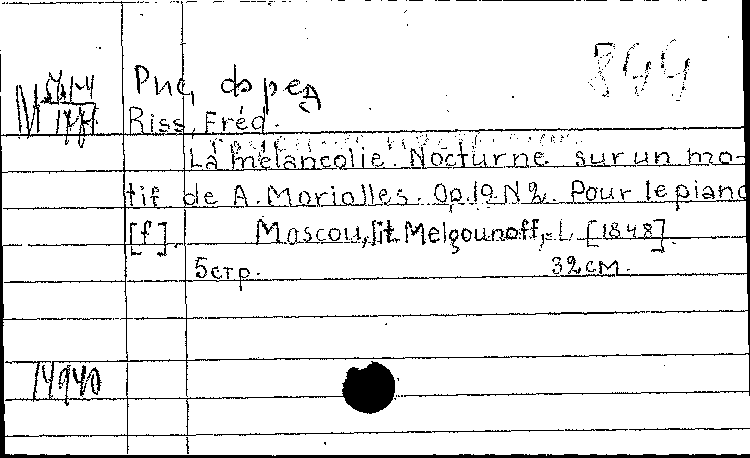 844
Рис, Фред
Riss, Fréd.
La mélancolie. Nocturne sur un mo-
tif de A. Morialles. Op.12 N2. Pour le piano
[f]. Moscou, lit Melgounoff, [1848].
5 стр. 32 см.
14940